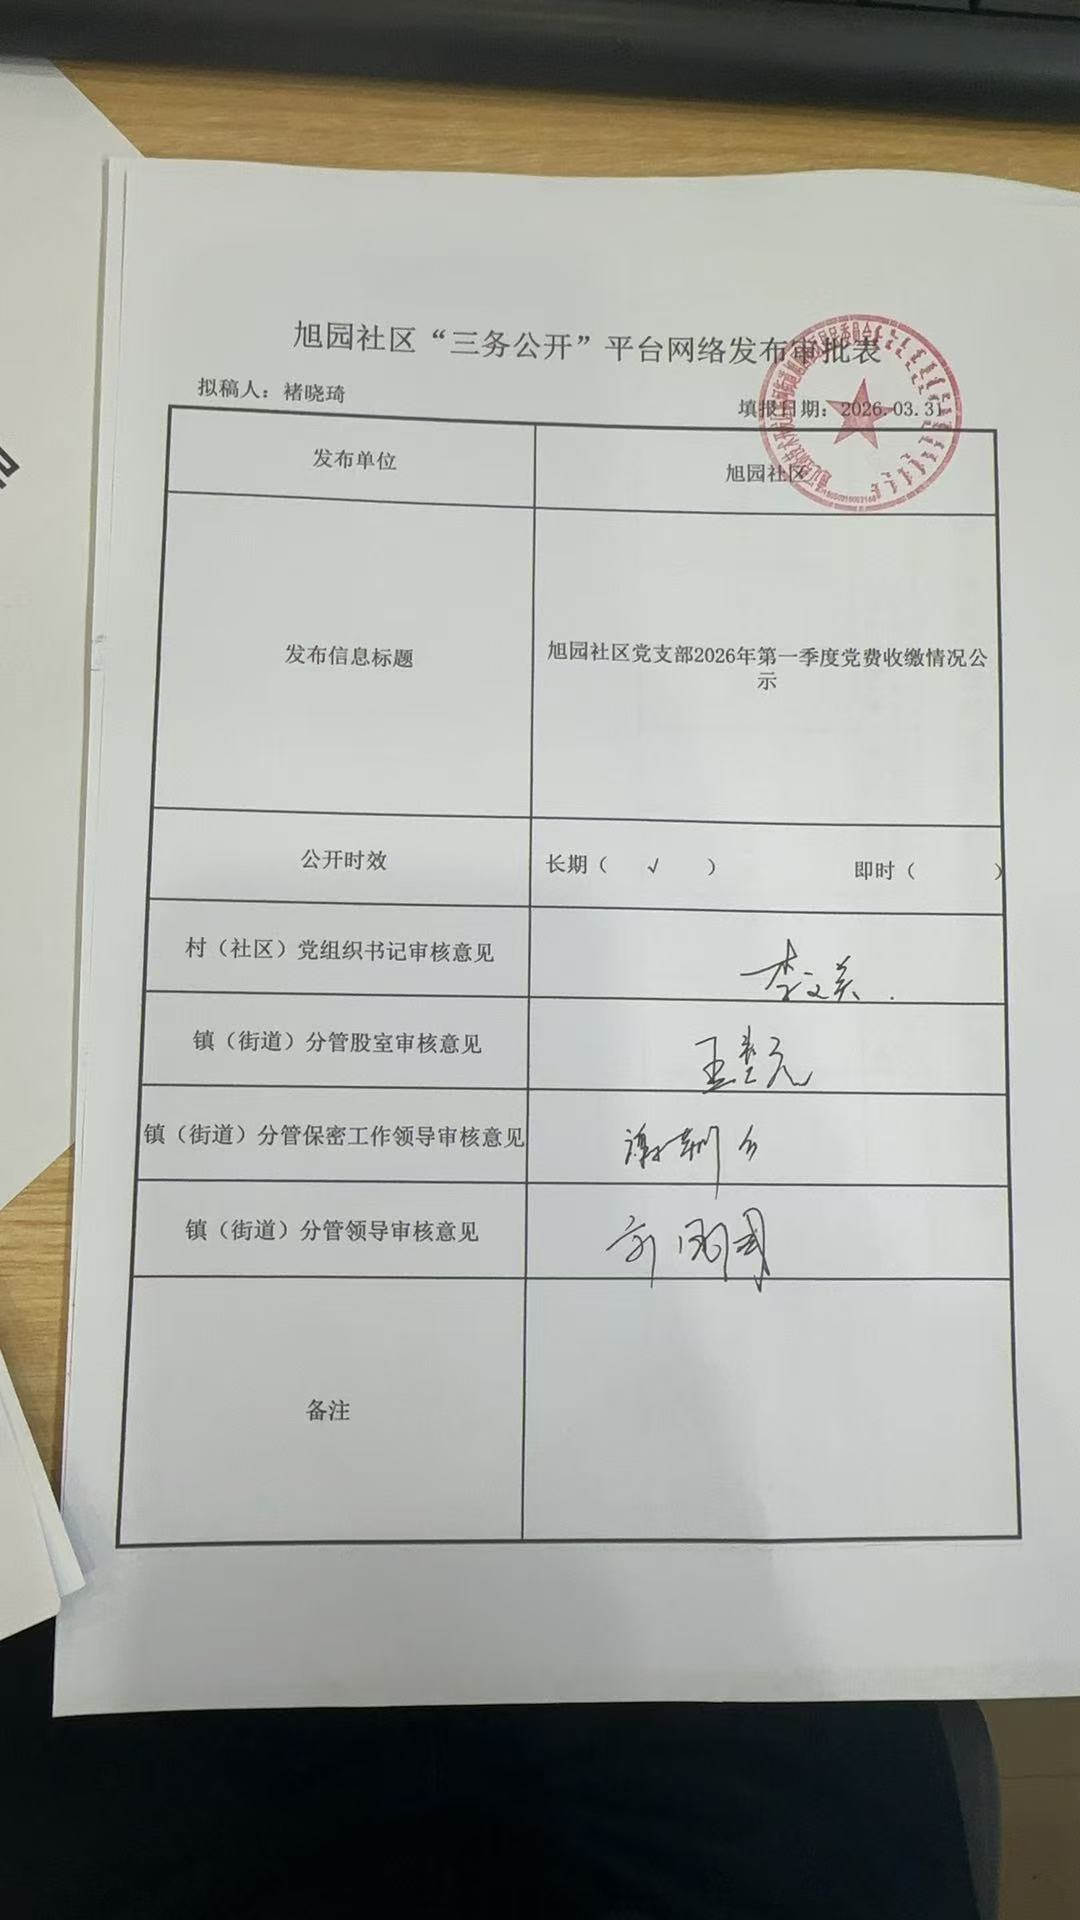 旭园社区“三务公开”平台网络发布审批表
拟稿人：褚晓琦
填报日期：2026.03.31
发布单位
旭园社区
发布信息标题
旭园社区党支部2026年第一季度党费收缴情况公
示
公开时效
长期（ √ ） 即时（ ）
村（社区）党组织书记审核意见
李文美
镇（街道）分管股室审核意见
镇（街道）分管保密工作领导审核意见
镇（街道）分管领导审核意见
备注